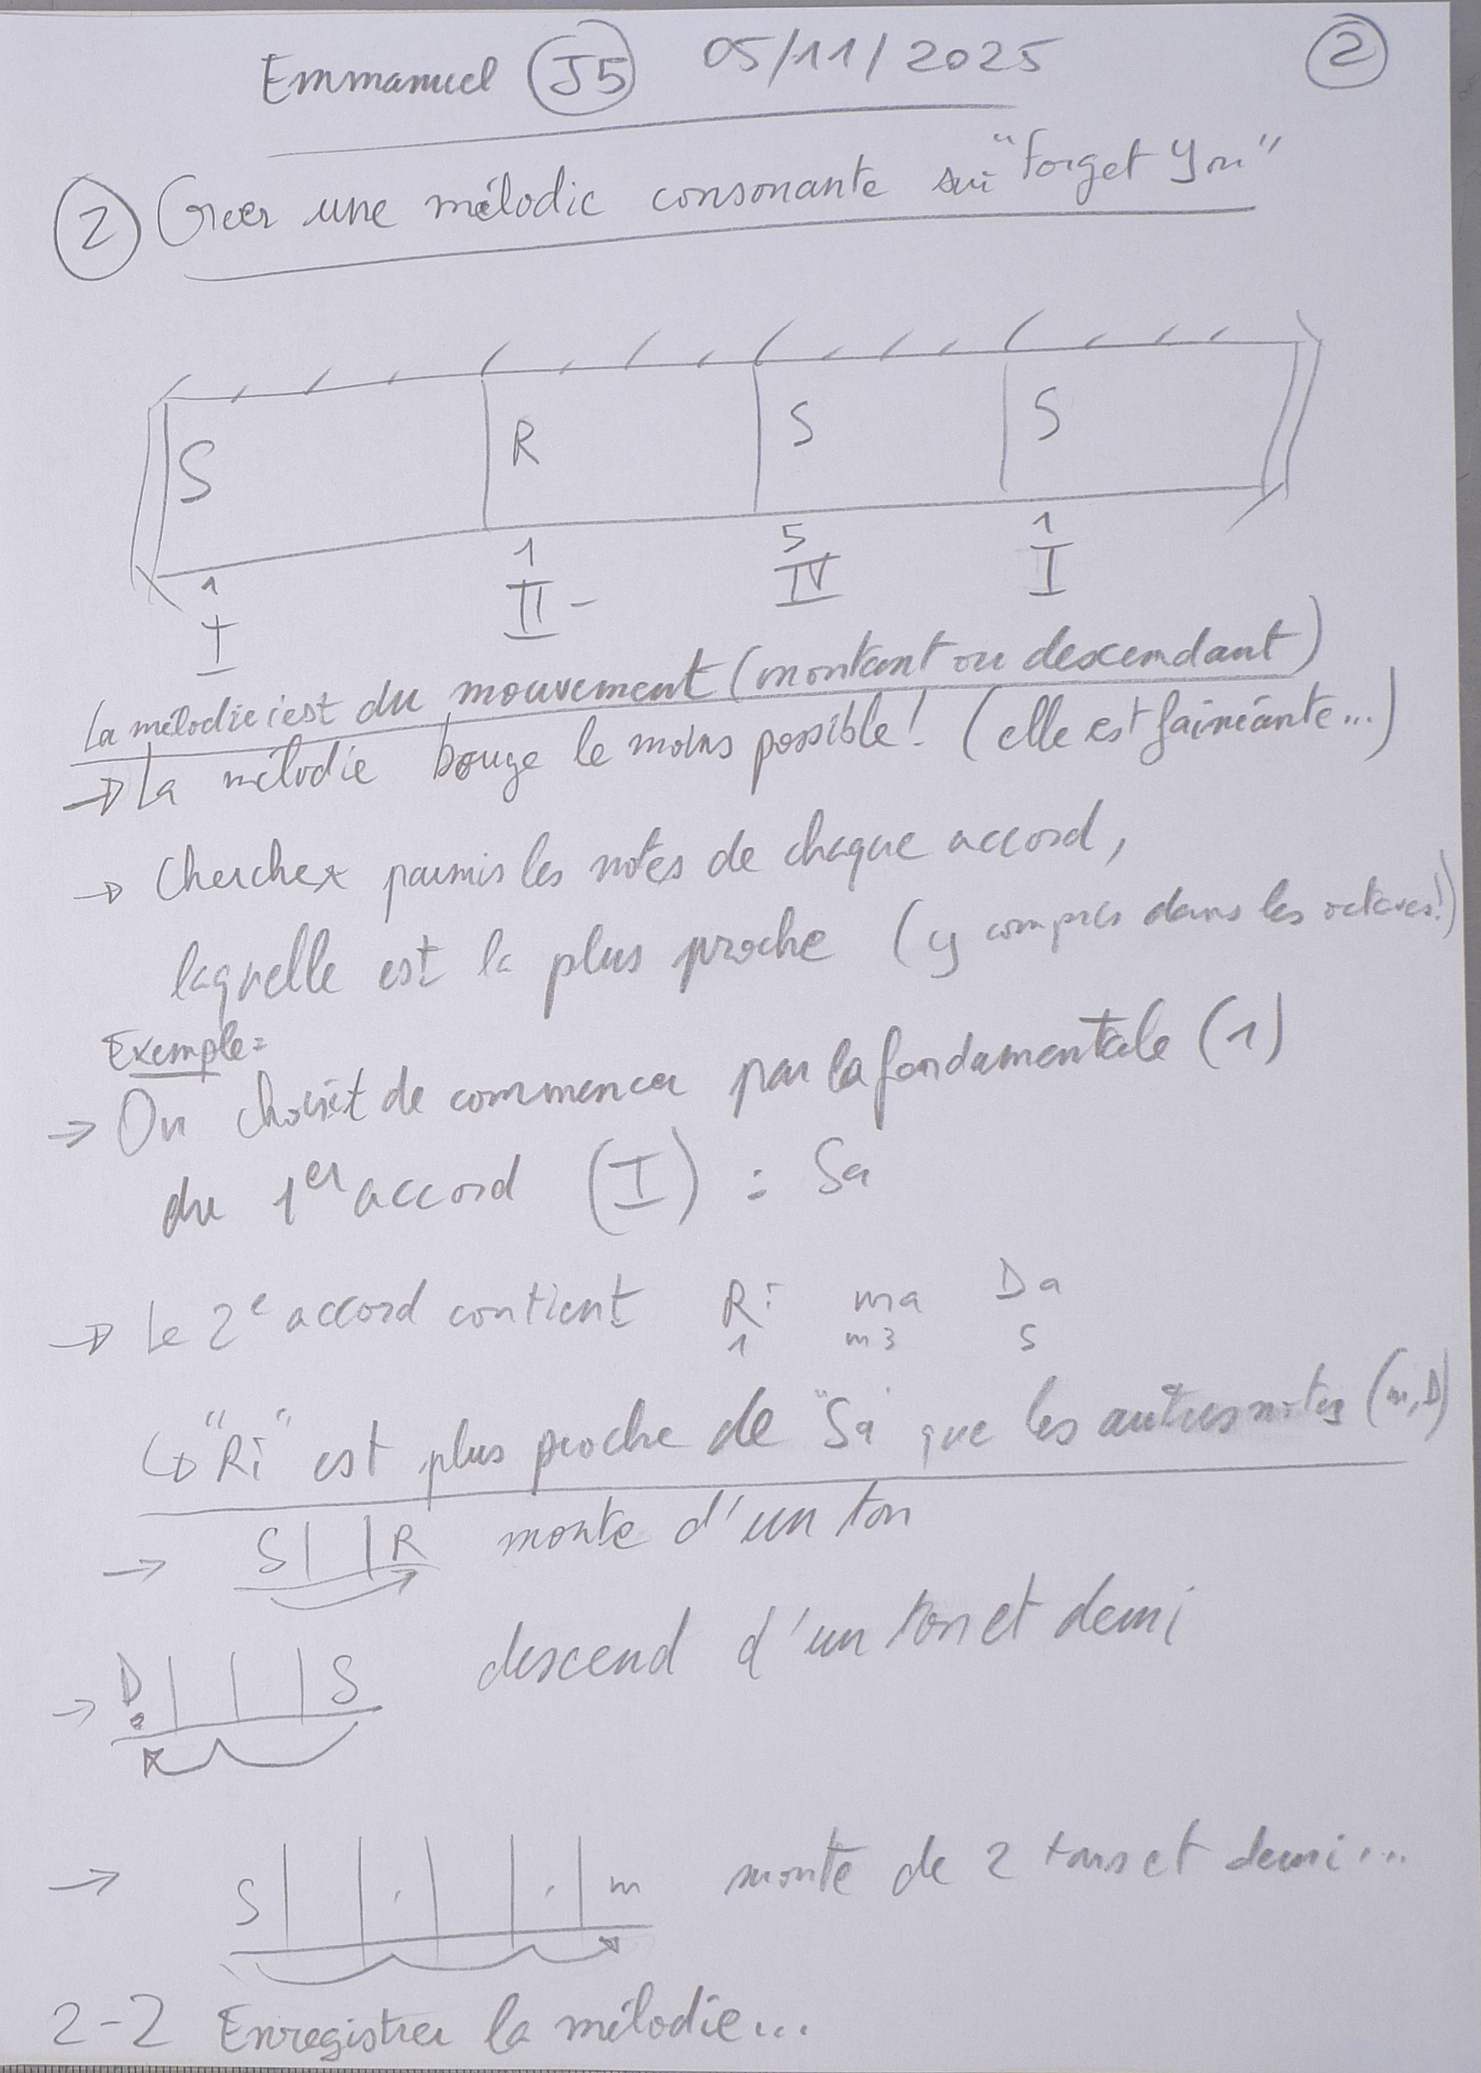 Emmanuel J5 05/11/2025 2
2 Créer une mélodie consonante sur "Forget You"
S R S S
1 1 5 1
I II- IV I
La mélodie c'est du mouvement (montant ou descendant)
→ La mélodie bouge le moins possible! (elle est fainéante...)
→ Chercher parmis les notes de chaque accord,
laquelle est la plus proche (y compris dans les octaves!)
Exemple:
→ On choisit de commencer par la fondamentale (1)
du 1er accord (I) : Sa
→ Le 2e accord contient Ri ma Da
1 m3 5
↳ "Ri" est plus proche de "Sa" que les autres notes (m, D)
→ S R monte d'un ton
→ D S descend d'un ton et demi
→ S m monte de 2 tons et demi...
2-2 Enregistrer la mélodie...